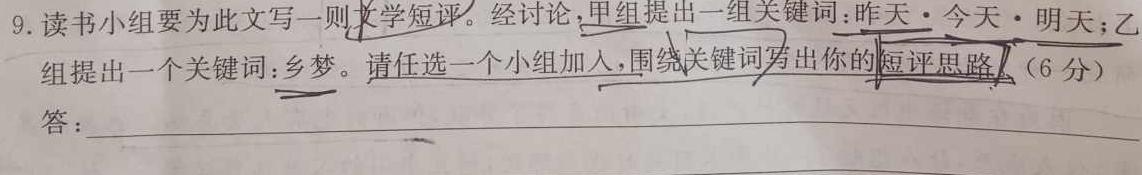 9. 读书小组要为此文写一则文学短评。经讨论,甲组提出一组关键词:昨天·今天·明天;乙
组提出一个关键词:乡梦。请任选一个小组加入,围绕关键词写出你的短评思路。(6分)
答: